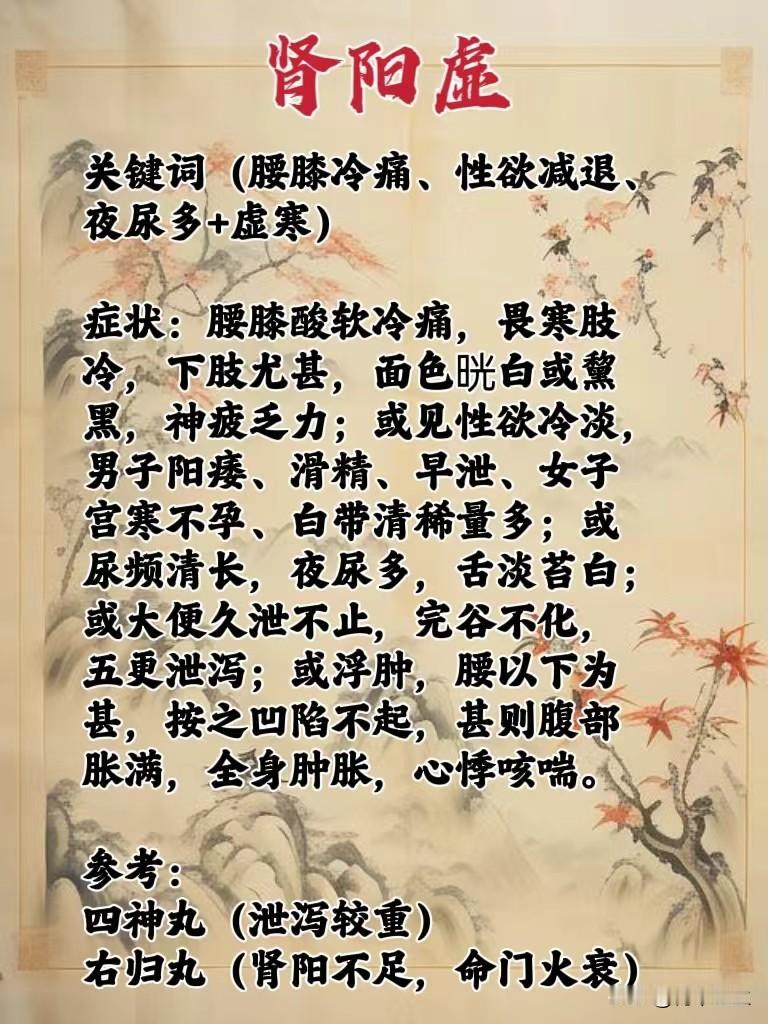 肾阳虚
关键词（腰膝冷痛、性欲减退、
夜尿多+虚寒）
症状：腰膝酸软冷痛，畏寒肢
冷，下肢尤甚，面色晄白或黧
黑，神疲乏力；或见性欲冷淡，
男子阳痿、滑精、早泄、女子
宫寒不孕、白带清稀量多；或
尿频清长，夜尿多，舌淡苔白；
或大便久泄不止，完谷不化，
五更泄泻；或浮肿，腰以下为
甚，按之凹陷不起，甚则腹部
胀满，全身肿胀，心悸咳喘。
参考：
四神丸（泄泻较重）
右归丸（肾阳不足，命门火衰）